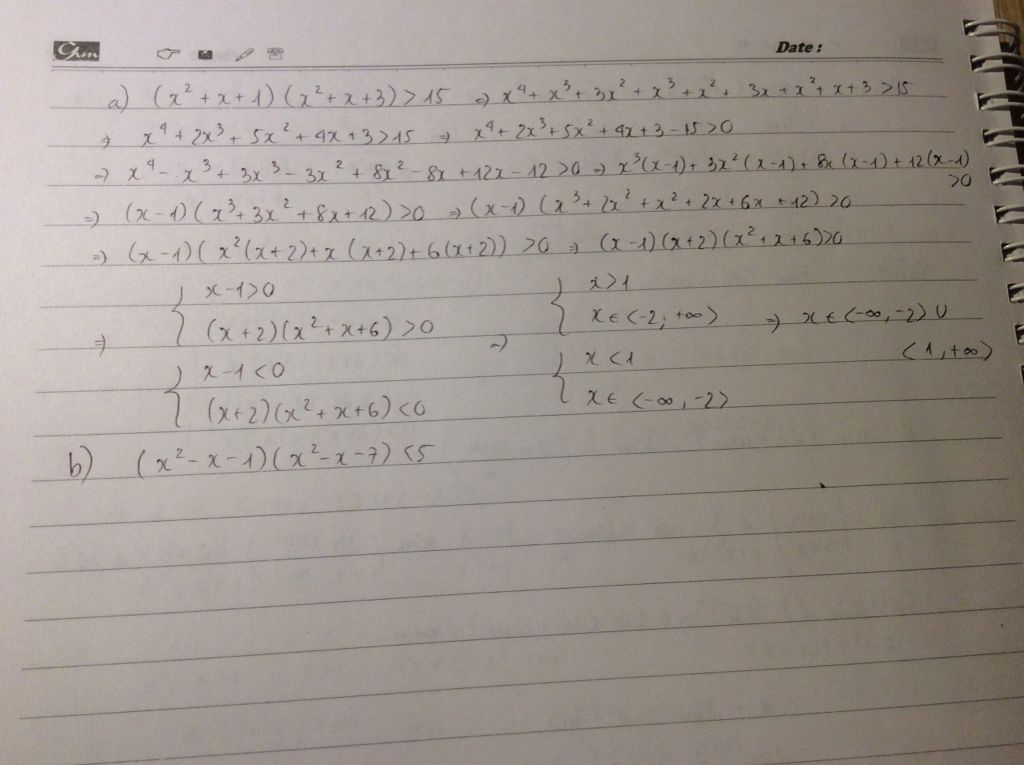 Date :
a) (x² + x + 1) (x² + x + 3) > 15 ⇒ x⁴ + x³ + 3x² + x³ + x² + 3x + x² + x + 3 > 15
⇒ x⁴ + 2x³ + 5x² + 4x + 3 > 15 ⇒ x⁴ + 2x³ + 5x² + 4x + 3 - 15 > 0
⇒ x⁴ - x³ + 3x³ - 3x² + 8x² - 8x + 12x - 12 > 0 ⇒ x³(x-1) + 3x²(x-1) + 8x(x-1) + 12(x-1)
> 0
⇒ (x-1)(x³ + 3x² + 8x + 12) > 0 ⇒ (x-1) (x³ + 2x² + x² + 2x + 6x + 12) > 0
⇒ (x-1)( x²(x+2) + x (x+2) + 6(x+2)) > 0 ⇒ (x-1)(x+2)(x² + x + 6) > 0
{ x-1 > 0 { x > 1
(x+2)(x² + x + 6) > 0 x ∈ (-2; +∞) ⇒ x ∈ (-∞, -2) ∪
⇒ ⇒ (1, +∞)
{ x-1 < 0 { x < 1
(x+2)(x² + x + 6) < 0 x ∈ (-∞, -2)
b) (x² - x - 1)(x² - x - 7) < 5